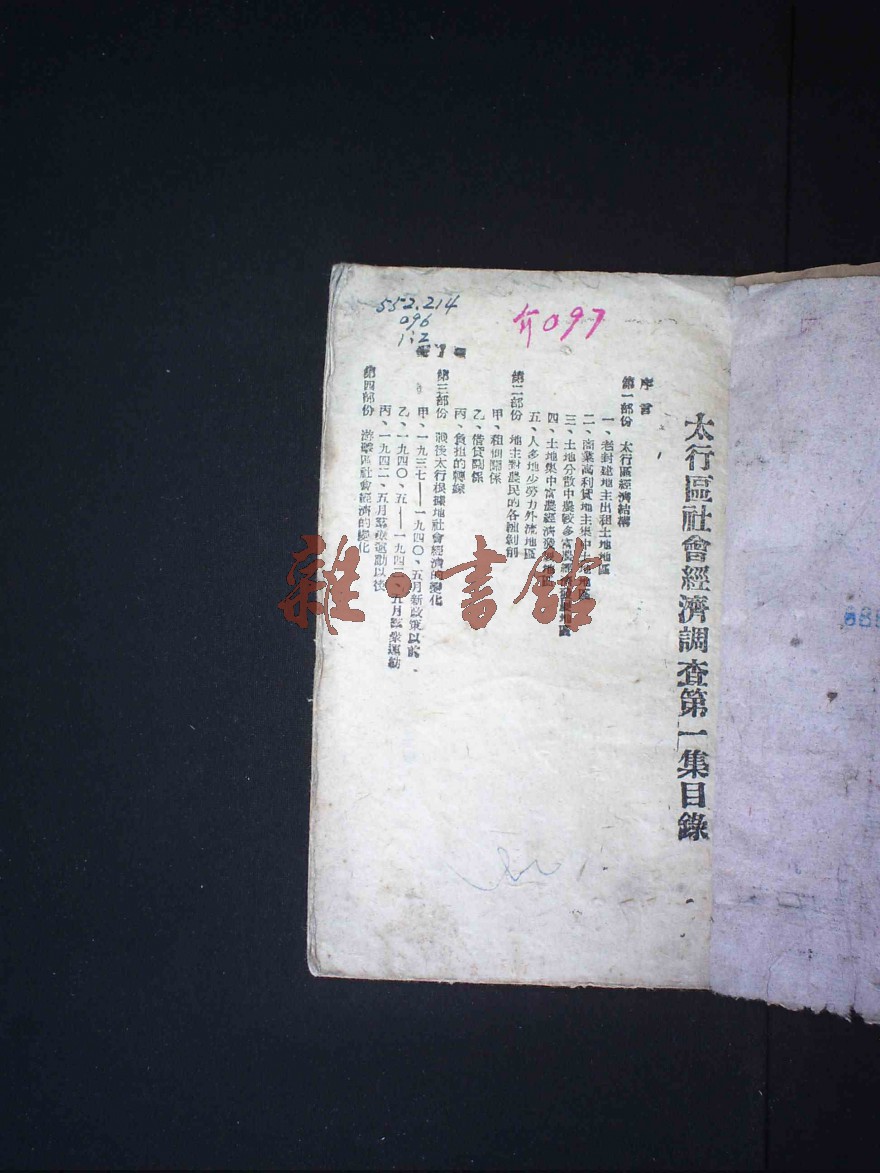 552.214
096
1:2
介097
太行區社會經濟調查第一集目錄
序言
第一部份 太行區經濟結構
一、老封建地主出租土地地區
二、商業高利貸地主集中土地地區
三、土地分散中農較多富農經濟發展地區
四、土地集中富農經濟發展地區
五、人多地少勞力外流地區
第二部份 地主對農民的各種剝削
甲、租佃關係
乙、借貸關係
丙、負担的轉嫁
第三部份 戰後太行根據地社會經濟的變化
甲、一九三七——一九四〇、五月新政策以前
乙、一九四〇、五——一九四二、五月羣衆運動
丙、一九四二、五月羣衆運動以後
第四部份 游擊區社會經濟的變化
雜·書館